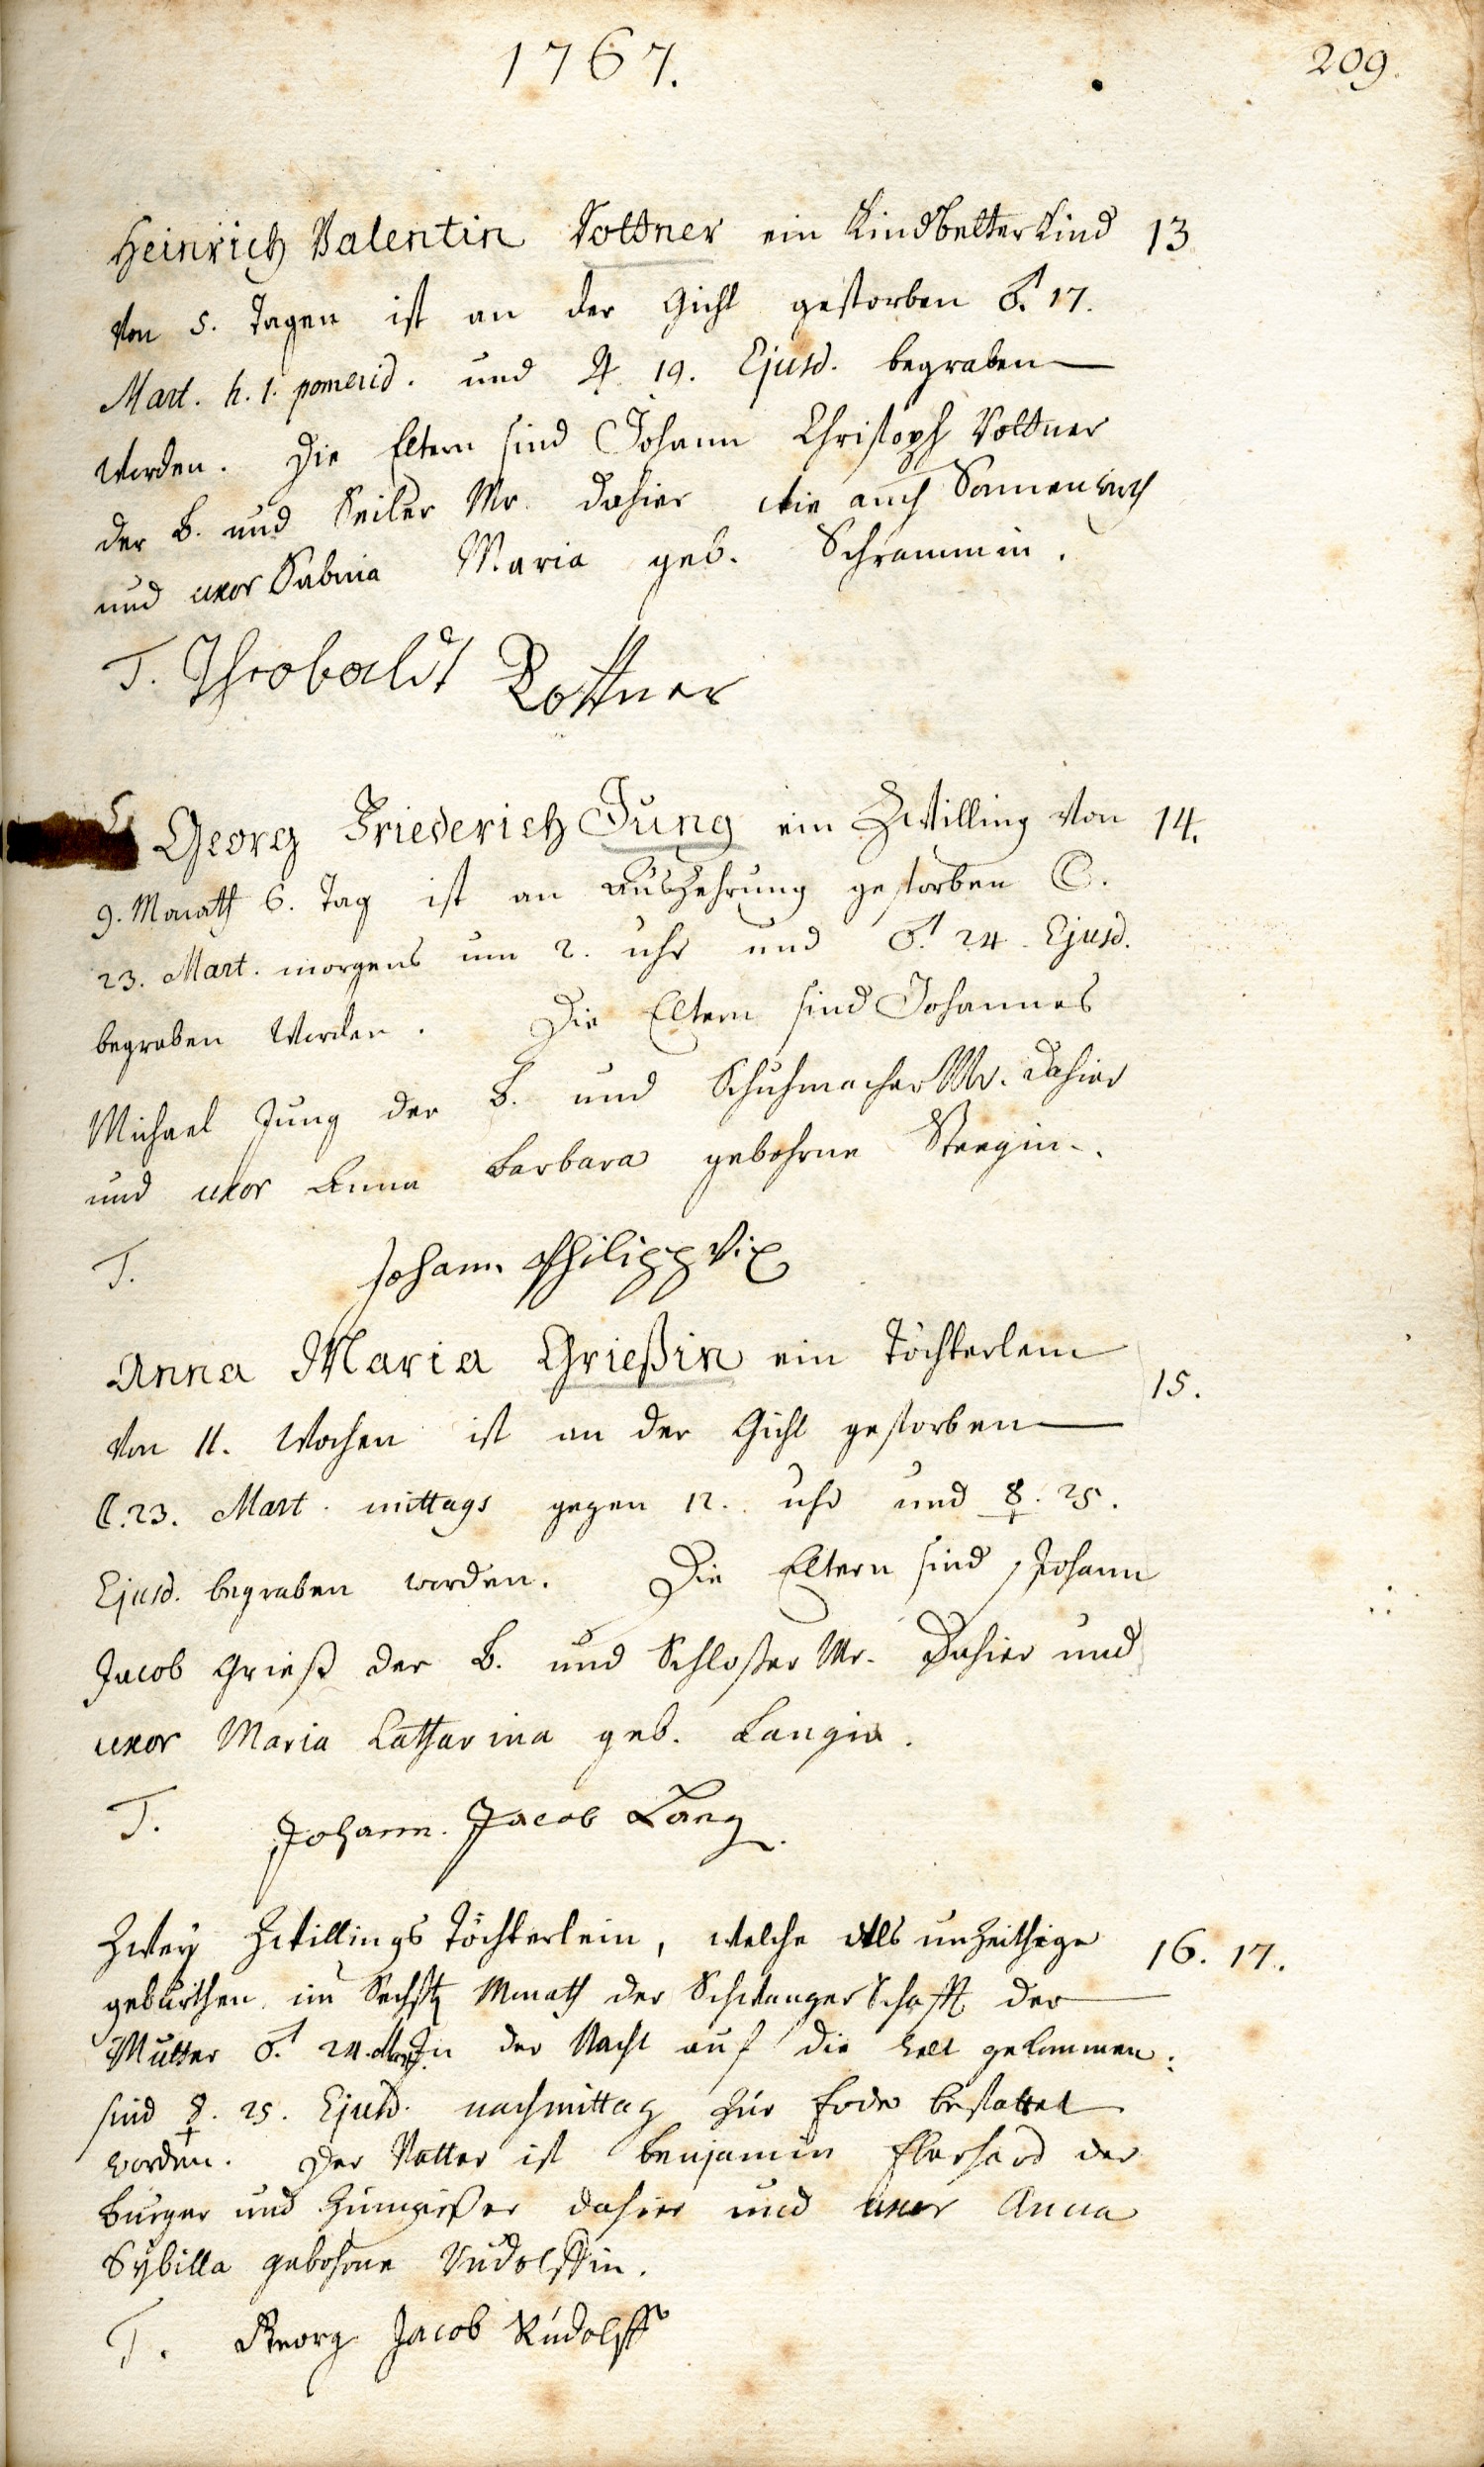 1767.
209.
Heinrich Valentin Rottner ein Kindbetterkind 13
von 5. Tagen ist an der Gicht gestorben ♂. 17.
Mart. h. 1. pomerid. und ♃. 19. Ejusd. begraben
worden. Die Eltern sind Johann Christoph Rottner
der B. und Seiler Mr. dahier wie auch
und uxor Sabina Maria geb. Schrammin.
T. Theobaldt Rottner
Georg Friederich Jung ein Zwilling von 14.
9. Monath 6. Tag ist an Auszehrung gestorben ☾.
23. Mart. morgens um 2. uhr und ♂. 24. Ejusd.
begraben worden. Die Eltern sind Johannes
Michael Jung der B. und Schuhmacher Mr. dahier
und uxor Anna Barbara gebohrne Steegin.
T. Johann Philipp Vix
Anna Maria Grießin ein Töchterlein 15.
von 11. Wochen ist an der Gicht gestorben
☾. 23. Mart. mittags gegen 12. uhr und ☿. 25.
Ejusd. begraben worden. Die Eltern sind Johann
Jacob Grieß der B. und Schloßer Mr. dahier und
uxor Maria Catharina geb. Langin.
T. Johann Jacob Lang
Zwey Zwillings Töchterlein, welche als unzeithige 16. 17.
geburthen im Sechsten Monath der Schwangerschafft der
Mutter ♂. 24. Mart. in der Nacht auf die welt gekommen:
sind ☿. 25. Ejusd. nachmittag zur Erde bestattet
worden. Der Vatter ist Benjamin Eberhard der
Burger und Zinngießer dahier und uxor Anna
Sybilla gebohrne Rudolffin.
T. Georg Jacob Rudolff